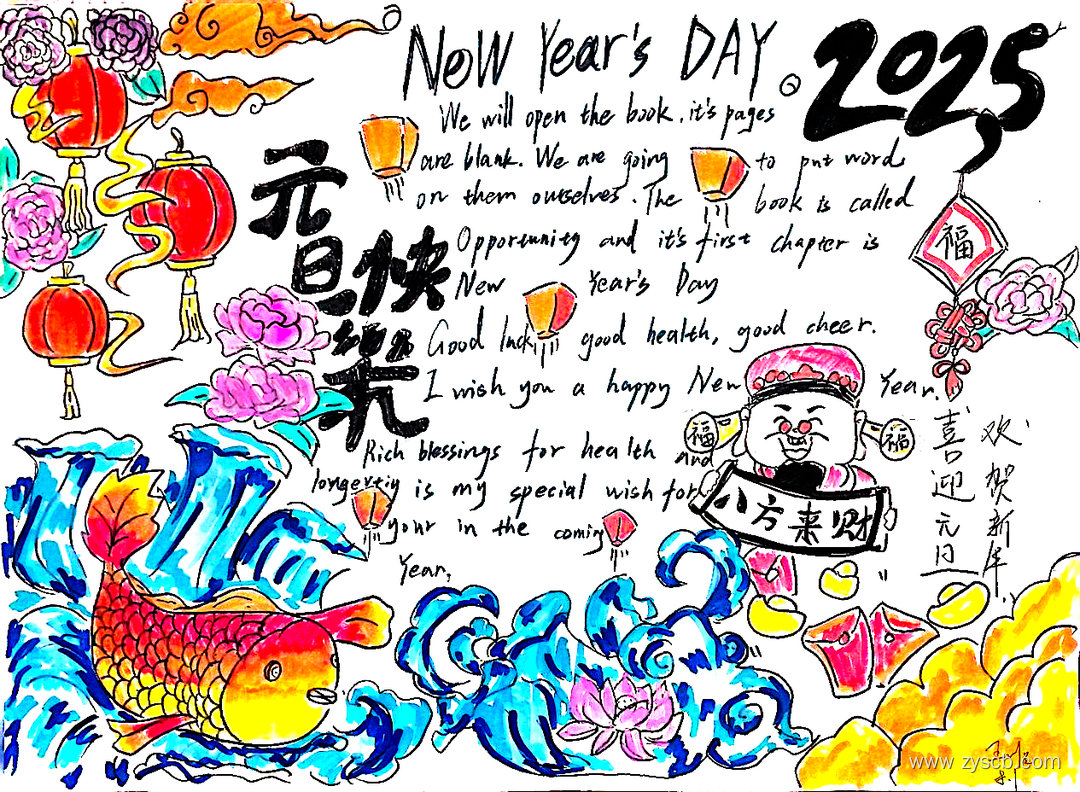 New Year's DAY
2025
We will open the book. it's pages
are blank. We are going to put word
on them ourselves. The book is called
Opportunity and it's first chapter is
New Year's Day
Good luck, good health, good cheer.
I wish you a happy New Year.
Rich blessings for health and
longevity is my special wish for
your in the coming
Year.
元旦快樂
福
福
福
八方来财
欢贺新年
喜迎元旦
www.zyscb.com